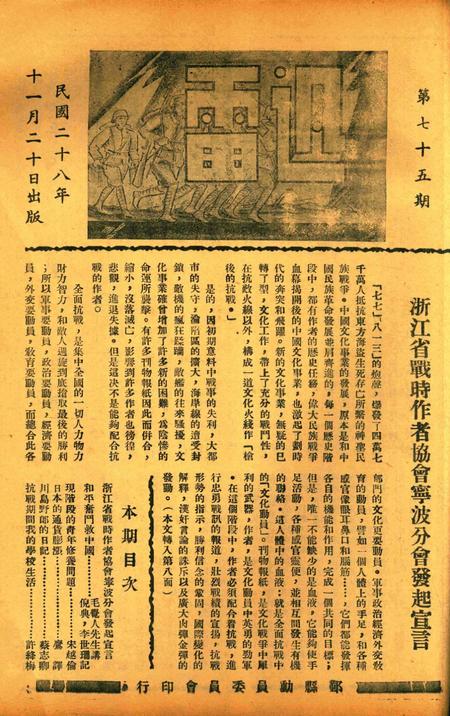 第七十五期
迅雷
民國二十八年
十一月二十日出版
浙江省戰時作者協會寧波分會發起宣言
「七七」「八一三」的炮聲，爆發了四萬七
千萬人抵抗東方海盜生死存亡所繫的神聖民
族戰爭。中國文化事業的發展，原本是和中
國民族革命發展並肩齊進的，每一個歷史階
段中，都有作者的歷史任務，偉大民族戰爭
血幕揭開後的中國文化事業，也激起了劃時
代的奔突和飛躍。新的文化事業，無疑的已
轉了型，文化工作，帶上了充分的戰鬥性，
在抗敵火線以外，構成一道文化火綫作「槍
後的抗戰。」
是的，因初期意料中戰事的失利，大都
市的失守，淪陷區的擴大，海岸線的遭受封
鎖，敵機的瘋狂蹂躪，敵艦的往來騷擾，文
化事業確曾增加了許多新的困難，爲陰慘的
命運所襲擊。有許多刊物報紙因此而停刊，
縮小，沒落滅亡，影響到許多作者也徬徨，
悲觀，進退失據。但是這决不是能夠配合抗
戰的作者。
全面抗戰，是集中全國的一切人力物力
財力智力，和敵人週旋到底搶取最後的勝利
；所以軍事要動員，政治要動員，經濟要動
員，外交要動員，敎育要動員，而總合此各
部門的文化更要動員。軍事政治經濟外交敎
育的動員，譬如一個人體上的手足，和各種
感官像眼耳鼻口和腦筋……，它們都能發揮
各自的機能和作用，完成一個共同的目標；
但是，唯一不能缺少的是血液，它能夠使手
足活動，各種感官靈便，並相互間發生有機
的聯絡。這人體中的血液：就是全面抗戰中
的「文化動員」。刊物報紙，是文化戰爭中犀
利的武器，作者，是文化動員中英勇的勁軍
。在這個階段中，作者必須配合着抗戰，進
行忠勇戰訊的報道，壯烈戰績的宣揚，抗戰
形勢的指示，勝利信念的鞏固，國際變化的
解釋，漢奸賣論的誅斥以及廣大肉彈金彈的
發動。（本文轉入第八面）
本期目次
浙江省戰時作者協會寧波分會發起宣言
和平奮鬥救中國……毛覺先生講 倪典，李世瓏記
現階段的靑年修養問題……宋越倫
日本的通貨膨漲……鷺譯
川島野郎的日記……蔡志卿
抗戰期間我的學校生活……許絳梅
鄞縣動員委員會印行